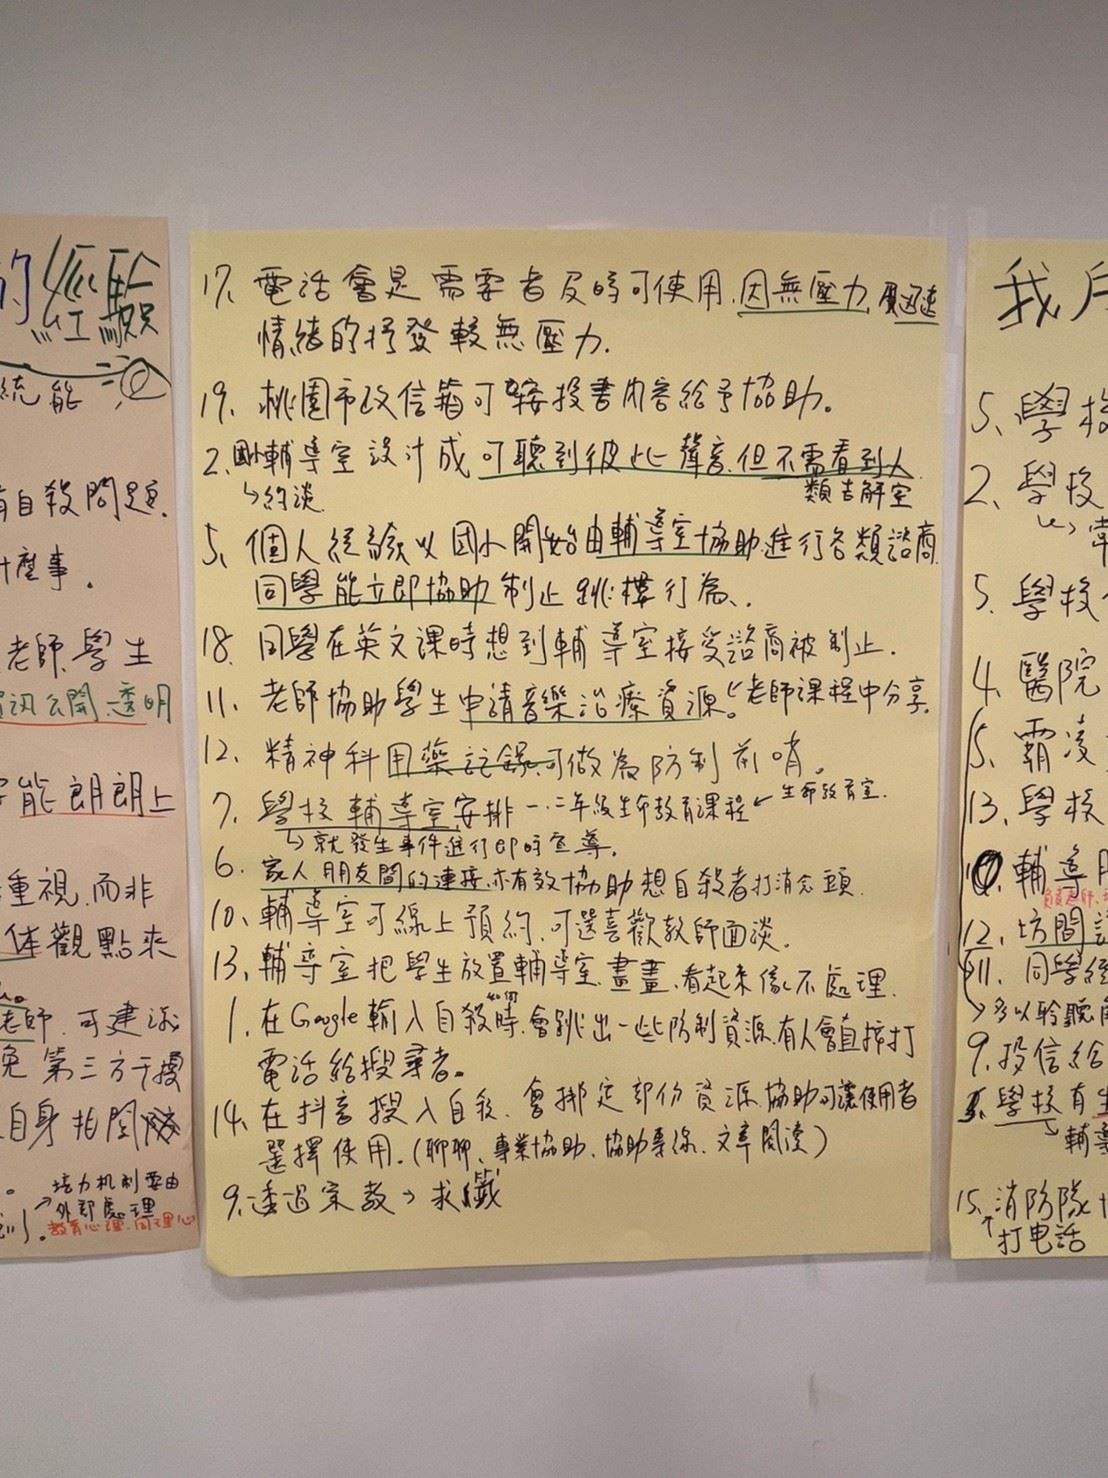 的經驗
統能
有自殺問題.
什麼事.
老師.學生
資訊公開.透明
能朗朗上
重視.而非
体觀點來
老師.可建議
免第三方干擾
自身相關
培力机制要由
外部處理
教育心理.同理心
17. 電話會是需要者及時可使用.因無壓力.更迅速
情緒的抒發較無壓力.
19. 桃園市政信箱可按投書內容給予協助。
2. 國小輔導室設計成可聽到彼此聲音.但不需看到人
→約談
類告解室
5. 個人經驗以國小開始由輔導室協助進行各類諮商.
同學能立即協助制止跳樓行為.
18. 同學在英文課時想到輔導室接受諮商被制止.
11. 老師協助學生申請音樂治療資源。←老師課程中分享.
12. 精神科用藥記錄.可做為防制前哨。
7. 學校輔導室安排一.二年級生命教育課程←生命教育室.
→就發生事件進行即時宣導.
6. 家人.朋友間的連接.亦有效協助想自殺者打消念頭.
10. 輔導室可線上預約.可選喜歡教師面談.
13. 輔導室把學生放置輔導室.畫畫.看起來像不處理.
如何
1. 在Google輸入自殺時.會跳出一些防制資源.有人會直接打
電話給搜尋者。
14. 在抖音搜入自殺.會排定部份資源.協助可讓使用者
選擇使用.(聊聊、專業協助、協助專線、文章閱讀)
9. 透過宗教→求籤
我
5. 學校
2. 學校
5. 學校
4. 醫院
15. 霸凌
13. 學校
10. 輔導
12. 坊間
11. 同學
→多以聆聽
9. 投信給
學校有
輔導
15. 消防隊
打電話